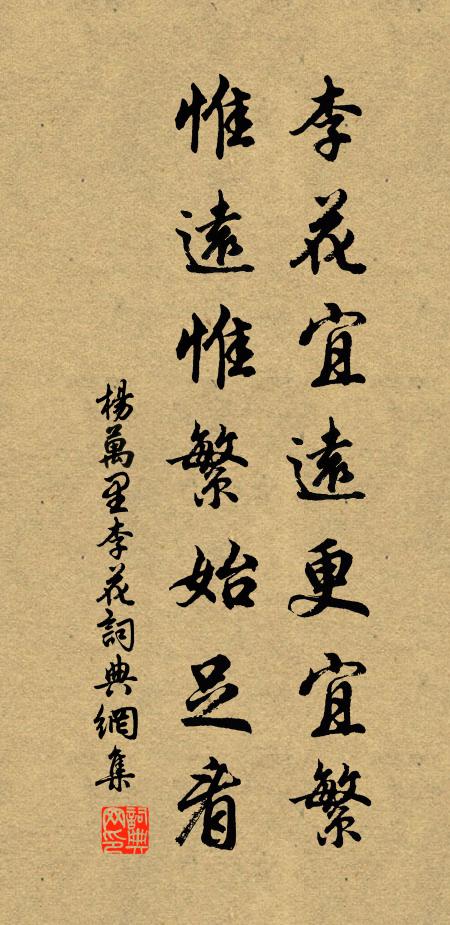 李花宜遠更宜繁
惟遠惟繁始足看
楊萬里李花詞典網集
詞典网印